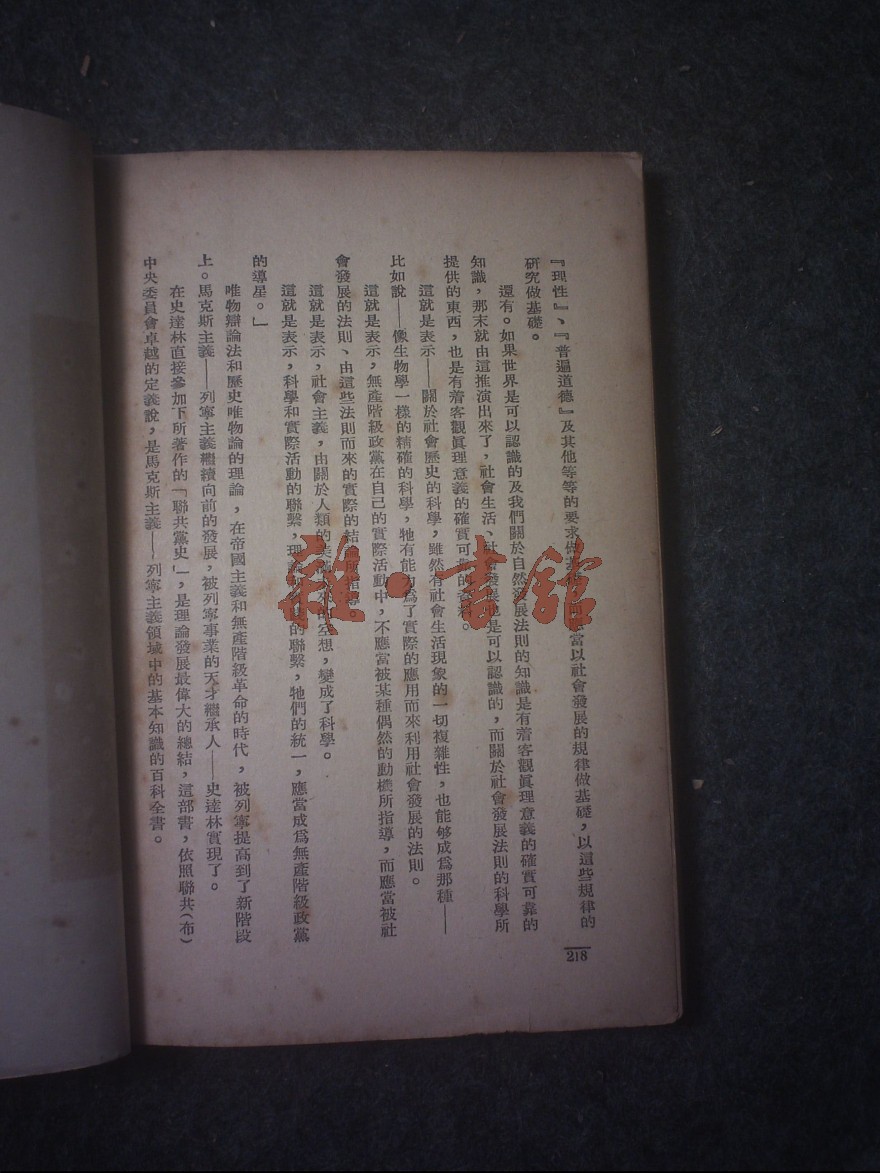 『理性』、『普遍道德』及其他等等的要求做基 當以社會發展的規律做基礎，以這些規律的
研究做基礎。
還有。如果世界是可以認識的及我們關於自然發展法則的知識是有着客觀眞理意義的確實可靠的
知識，那末就由這推演出來了，社會生活、社會發展也是可以認識的，而關於社會發展法則的科學所
提供的東西，也是有着客觀眞理意義的確實可靠的 料。
這就是表示——關於社會歷史的科學，雖然有社會生活現象的一切複雜性，也能够成爲那種——
比如說——像生物學一樣的精確的科學，牠有能力爲了實際的應用而來利用社會發展的法則。
這就是表示，無產階級政黨在自己的實際活動中，不應當被某種偶然的動機所指導，而應當被社
會發展的法則、由這些法則而來的實際的結 所指導。
這就是表示，社會主義，由關於人類的美 的空想，變成了科學。
這就是表示，科學和實際活動的聯繫，理論 的聯繫，牠們的統一，應當成爲無產階級政黨
的導星。」
唯物辯論法和歷史唯物論的理論，在帝國主義和無產階級革命的時代，被列寧提高到了新階段
上。馬克斯主義——列寧主義繼續向前的發展，被列寧事業的天才繼承人——史達林實現了。
在史達林直接參加下所著作的「聯共黨史」，是理論發展最偉大的總結，這部書，依照聯共（布）
中央委員會卓越的定義說，是馬克斯主義——列寧主義領域中的基本知識的百科全書。
218
雜·書館